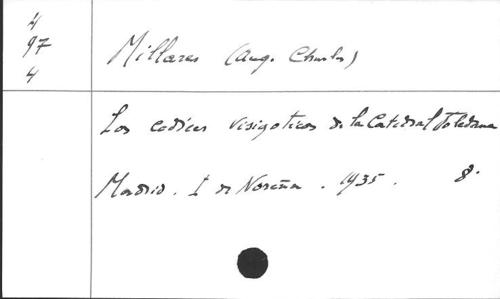 4
97
4
Millares (Aug. Charles)
Los codices visigoticos de la Catedral Toledana
Madrid. I de Noreña. 1935. 8.